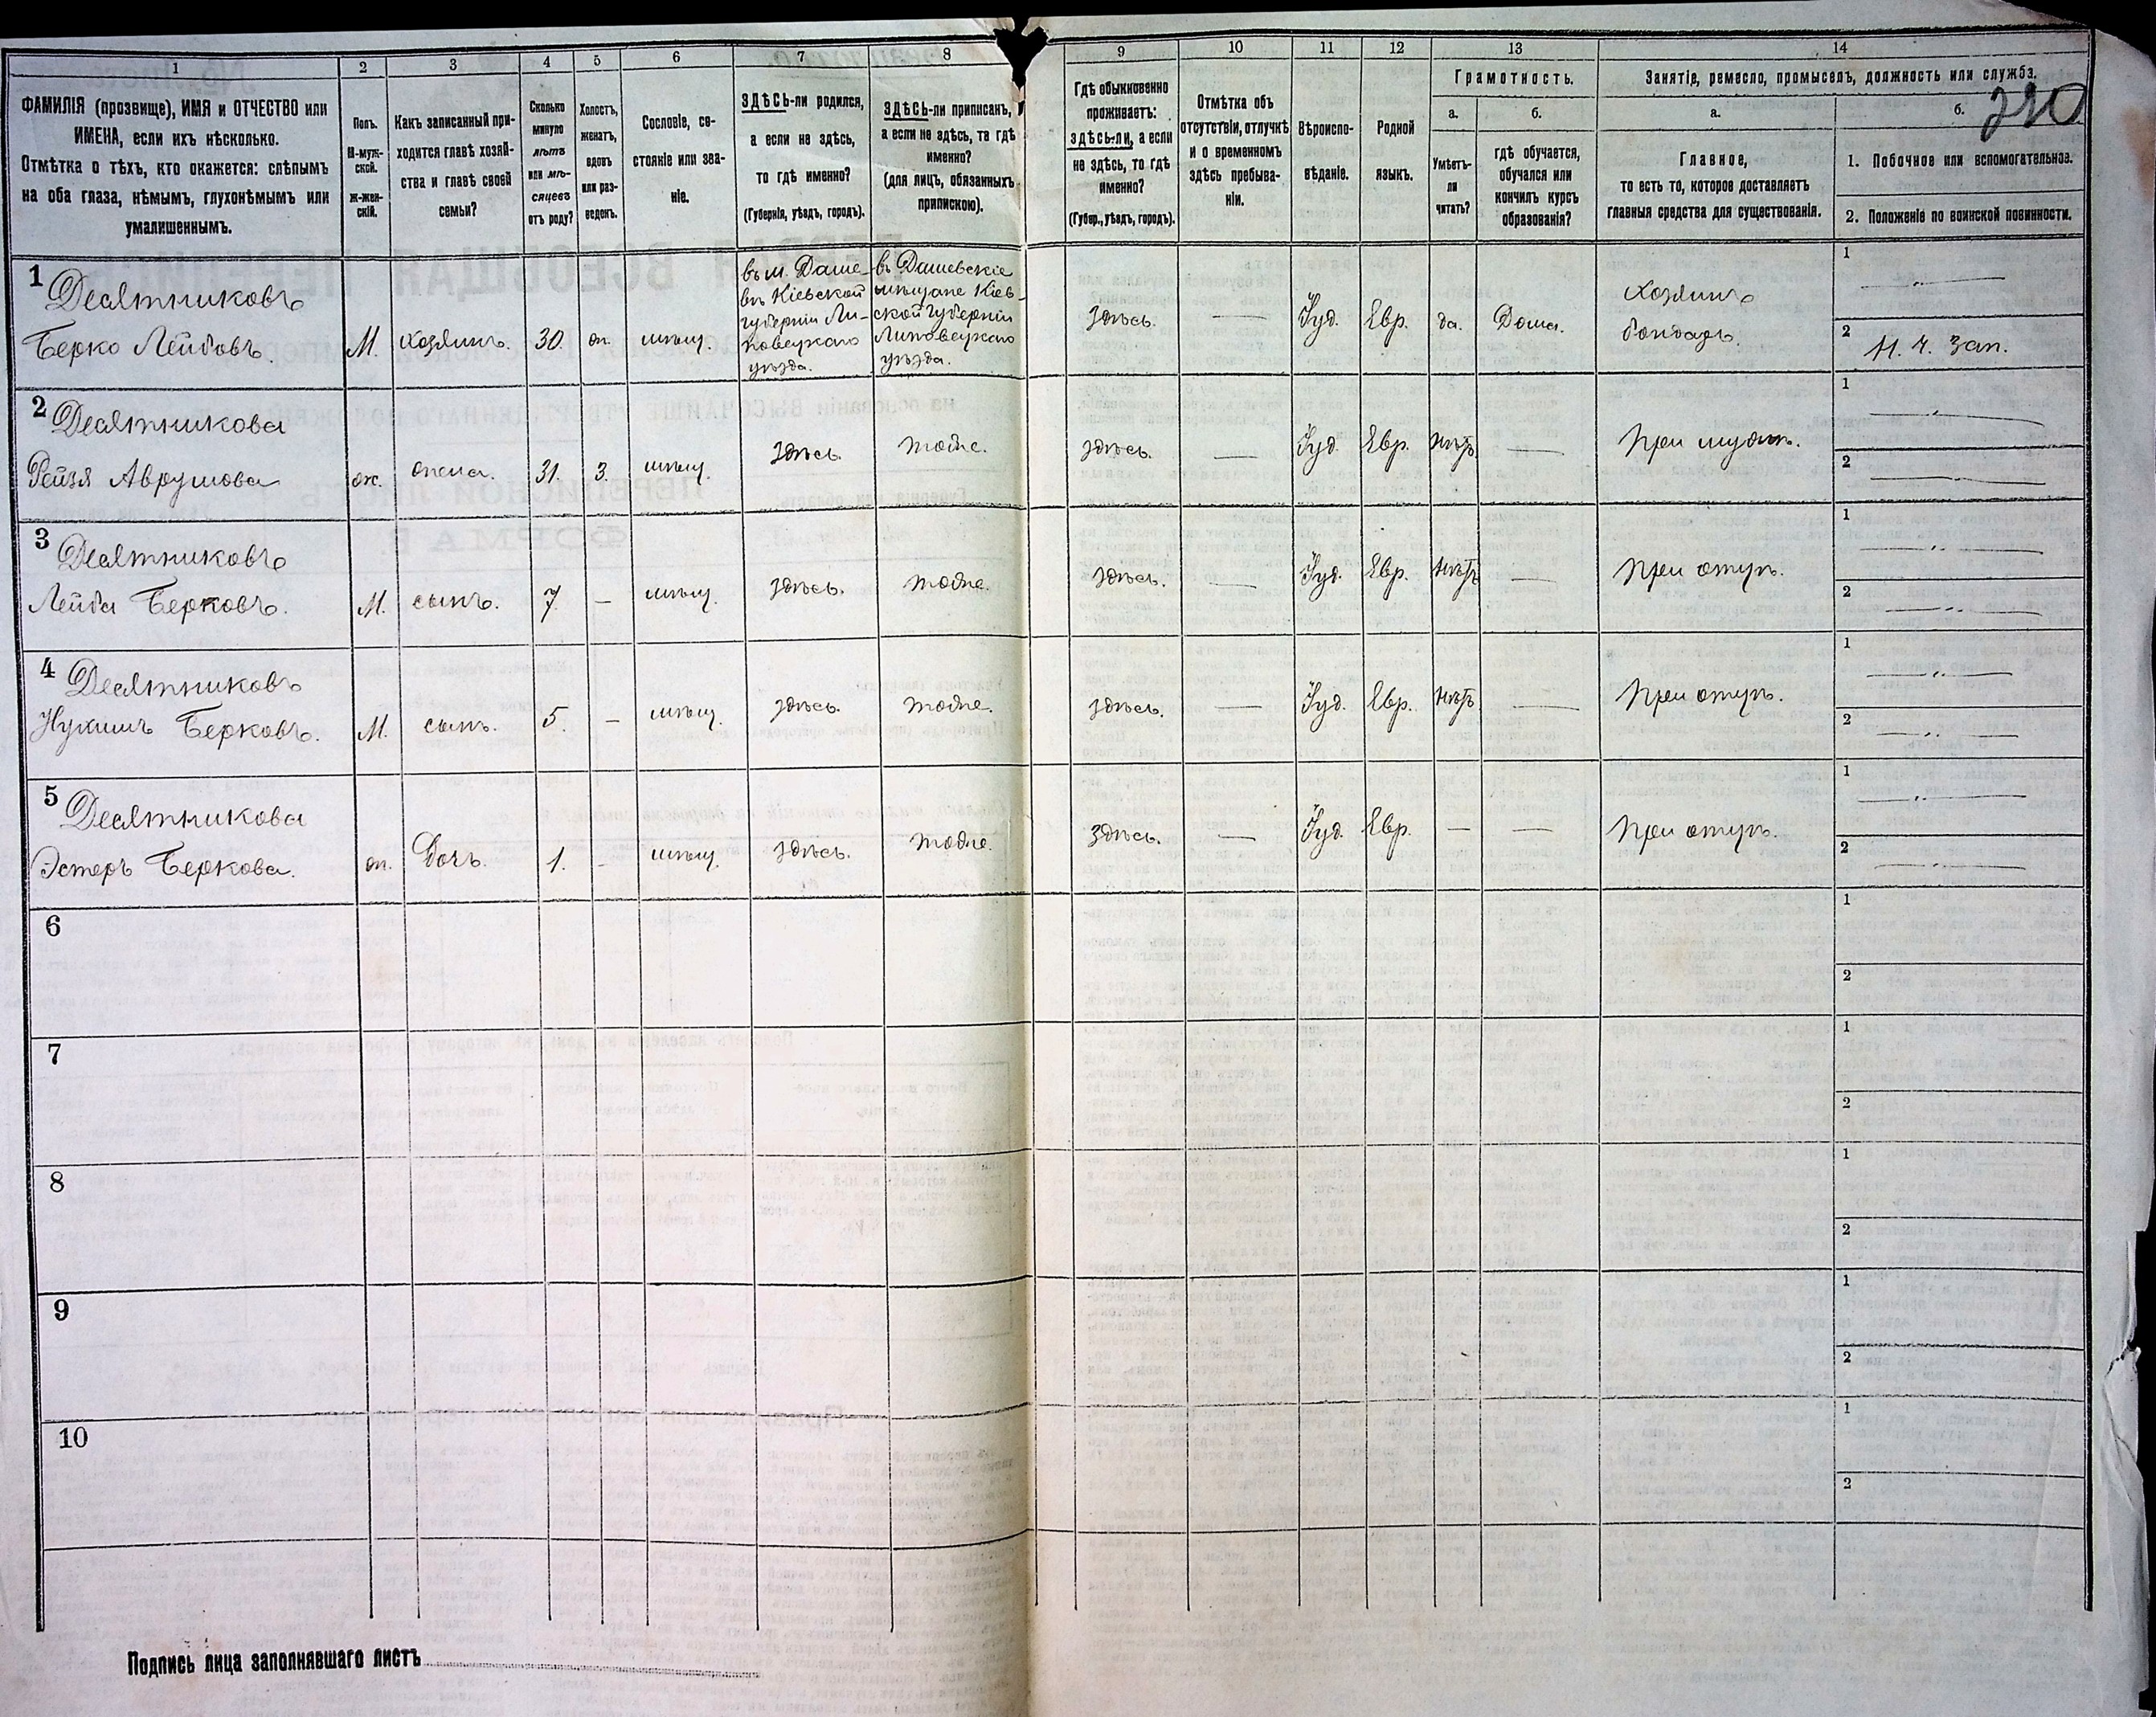 1 2 3 4 5 6 7 8 9 10 11 12 13 14
ФАМИЛІЯ (прозвище), ИМЯ и ОТЧЕСТВО или
ИМЕНА, если ихъ нѣсколько.
Отмѣтка о тѣхъ, кто окажется: слѣпымъ
на оба глаза, нѣмымъ, глухонѣмымъ или
умалишеннымъ.
Полъ.
М-муж-
ской.
Ж-жен-
скій.
Какъ записанный при-
ходится главѣ хозяй-
ства и главѣ своей
семьи?
Сколько
минуло
лѣтъ
или мѣ-
сяцевъ
отъ роду?
Холостъ,
женатъ,
вдовъ
или раз-
веденъ.
Сословіе, со-
стояніе или зва-
ніе.
ЗДѢСЬ-ли родился,
а если не здѣсь,
то гдѣ именно?
(Губернія, уѣздъ, городъ).
ЗДѢСЬ-ли приписанъ,
а если не здѣсь, то гдѣ
именно?
(для лицъ, обязанныхъ
припискою).
Гдѣ обыкновенно
проживаетъ:
ЗДѢСЬ-ли, а если
не здѣсь, то гдѣ
именно?
(Губер., уѣздъ, городъ).
Отмѣтка объ
отсутствіи, отлучкѣ
и о временномъ
здѣсь пребыва-
ніи.
Вѣроиспо-
вѣданіе.
Родной
языкъ.
Грамотность.
а.
Умѣетъ-
ли
читать?
б.
гдѣ обучается,
обучался или
кончилъ курсъ
образованія?
Занятіе, ремесло, промыселъ, должность или служба.
а.
Главное,
то есть то, которое доставляетъ
главныя средства для существованія.
б.
220
1. Побочное или вспомогательное.
2. Положеніе по воинской повинности.
1 Десятниковъ
Берко Лейбовъ.
М.
хозяинъ.
30.
ж.
мѣщ.
въ м. Даше-
вѣ Кіевской
губерніи Ли-
повецкаго
уѣзда.
въ Дашевскіе
мѣщане Кіев-
ской губерніи
Липовецкаго
уѣзда.
здѣсь.
—
Іуд.
Евр.
да.
Дома.
Хозяинъ
бондарь.
1
2 Н. ч. зап.
2 Десятникова
Рейзя Аврумова
ж.
жена.
31.
З.
мѣщ.
здѣсь.
тоже.
здѣсь.
—
Іуд.
Евр.
нѣтъ
—
При мужѣ.
1
2
3 Десятниковъ
Лейба Берковъ.
М.
сынъ.
7
—
мѣщ.
здѣсь.
тоже.
здѣсь.
—
Іуд.
Евр.
нѣтъ
—
При отцѣ.
1
2
4 Десятниковъ
Нухимъ Берковъ.
М.
сынъ.
5.
—
мѣщ.
здѣсь.
тоже.
здѣсь.
—
Іуд.
Евр.
нѣтъ
—
При отцѣ.
1
2
5 Десятникова
Эстеръ Беркова.
ж.
дочь.
1.
-
мѣщ.
здѣсь.
тоже.
здѣсь.
—
Іуд.
Евр.
—
—
При отцѣ.
1
2
6
1
2
7
1
2
8
1
2
9
1
2
10
1
2
Подпись лица заполнявшаго листъ